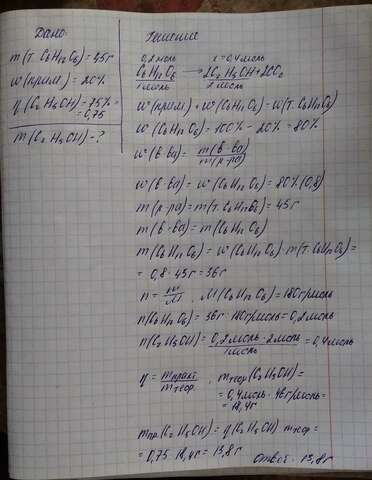 Дано
m(т. C6H12O6) = 45г
w(прим) = 20%
η(C2H5OH) - 75% =
= 0,75
m(C2H5OH) - ?
Решение
0,2моль x = 0,4моль
C6H12O6 → 2C2H5OH + 2CO2
1моль 2моль
w(прим) + w(C6H12O6) = w(т. C6H12O6)
w(C6H12O6) = 100% - 20% = 80%
w(в-ва) = m(в-ва) / m(р-ра)
w(в-ва) = w(C6H12O6) = 80% (0,8)
m(р-ра) = m(т. C6H12O6) = 45г
m(в-ва) = m(C6H12O6)
m(C6H12O6) = w(C6H12O6) · m(т. C6H12O6) =
= 0,8 · 45г = 36г
n = m/M , M(C6H12O6) = 180г/моль
n(C6H12O6) = 36г : 180г/моль = 0,2моль
n(C2H5OH) = 0,2моль · 2моль / 1моль = 0,4моль
η = mпракт. / mтеор. , mтеор(C2H5OH) =
= 0,4моль · 46г/моль =
= 18,4г
mпр.(C2H5OH) = η(C2H5OH) mтеор =
= 0,75 · 18,4г = 13,8г Ответ: 13,8г